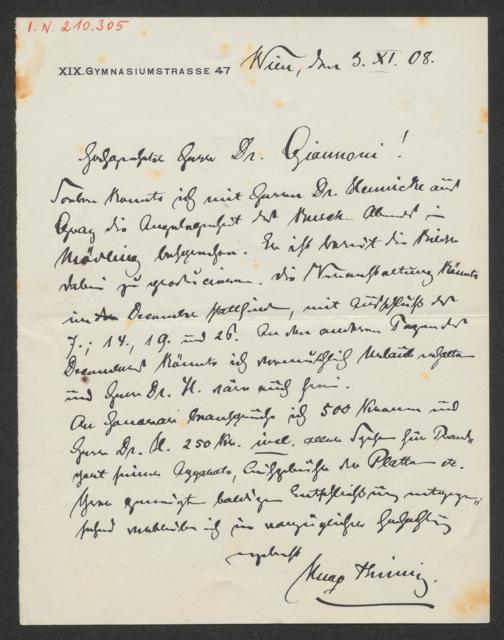 I.N. 210.305
XIX. GYMNASIUMSTRASSE 47
Wien, den 3. XI. 08.
Hochgeehrter Herr Dr. Giannoni!
Soeben konnte ich mit Herrn Dr. Hennicke aus
Graz die Angelegenheit des Abends in
Mödling besprechen. Er ist bereit die
dabei zu producieren. Die Veranstaltung könnte
im December stattfinden, mit Ausschluß des
7., 14., 19. und 26. An den anderen Tagen des
Decembers könnte ich vermuthlich Urlaub erhalten
und Herr Dr. H. wäre auch frei.
An Honorar beanspruche ich 500 Kronen und
Herr Dr. H. 250 Kr. incl. aller Spesen für Trans-
port seines Apparats, der Platten etc.
Ihrer geneigten baldigen Entschließung entgegen-
sehend verbleibe ich in vorzüglicher Hochachtung
ergebenst
Hugo Thimig.